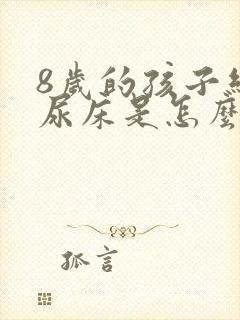 8歲的孩子
尿床是怎麼
孤言